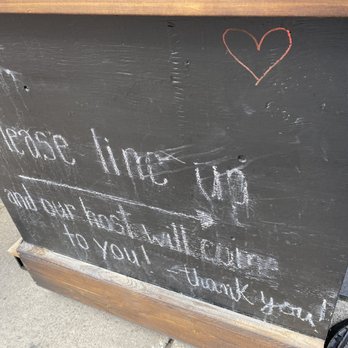 lease line up
and our host will come
to you!
thank you!